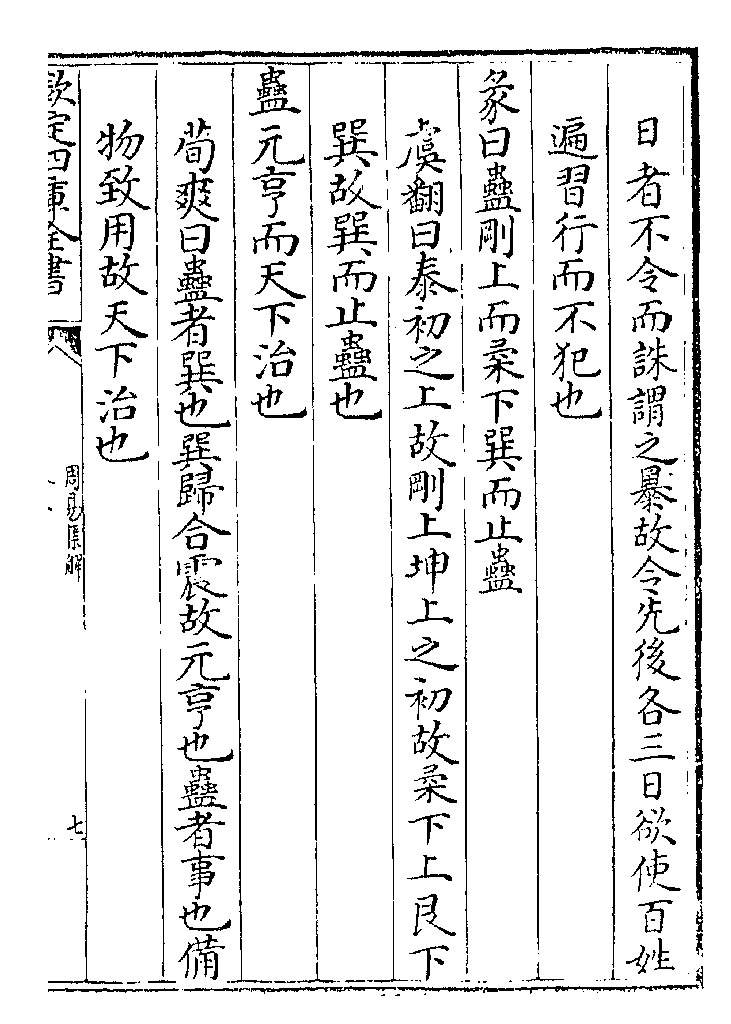 日者不令而誅謂之暴故令先後各三日欲使百姓
遍習行而不犯也
彖曰蠱剛上而柔下巽而止蠱
虞翻曰泰初之上故剛上坤上之初故柔下上艮下
巽故巽而止蠱也
蠱元亨而天下治也
荀爽曰蠱者巽也巽歸合震故元亨也蠱者事也備
物致用故天下治也
欽定四庫全書
周易集解
七